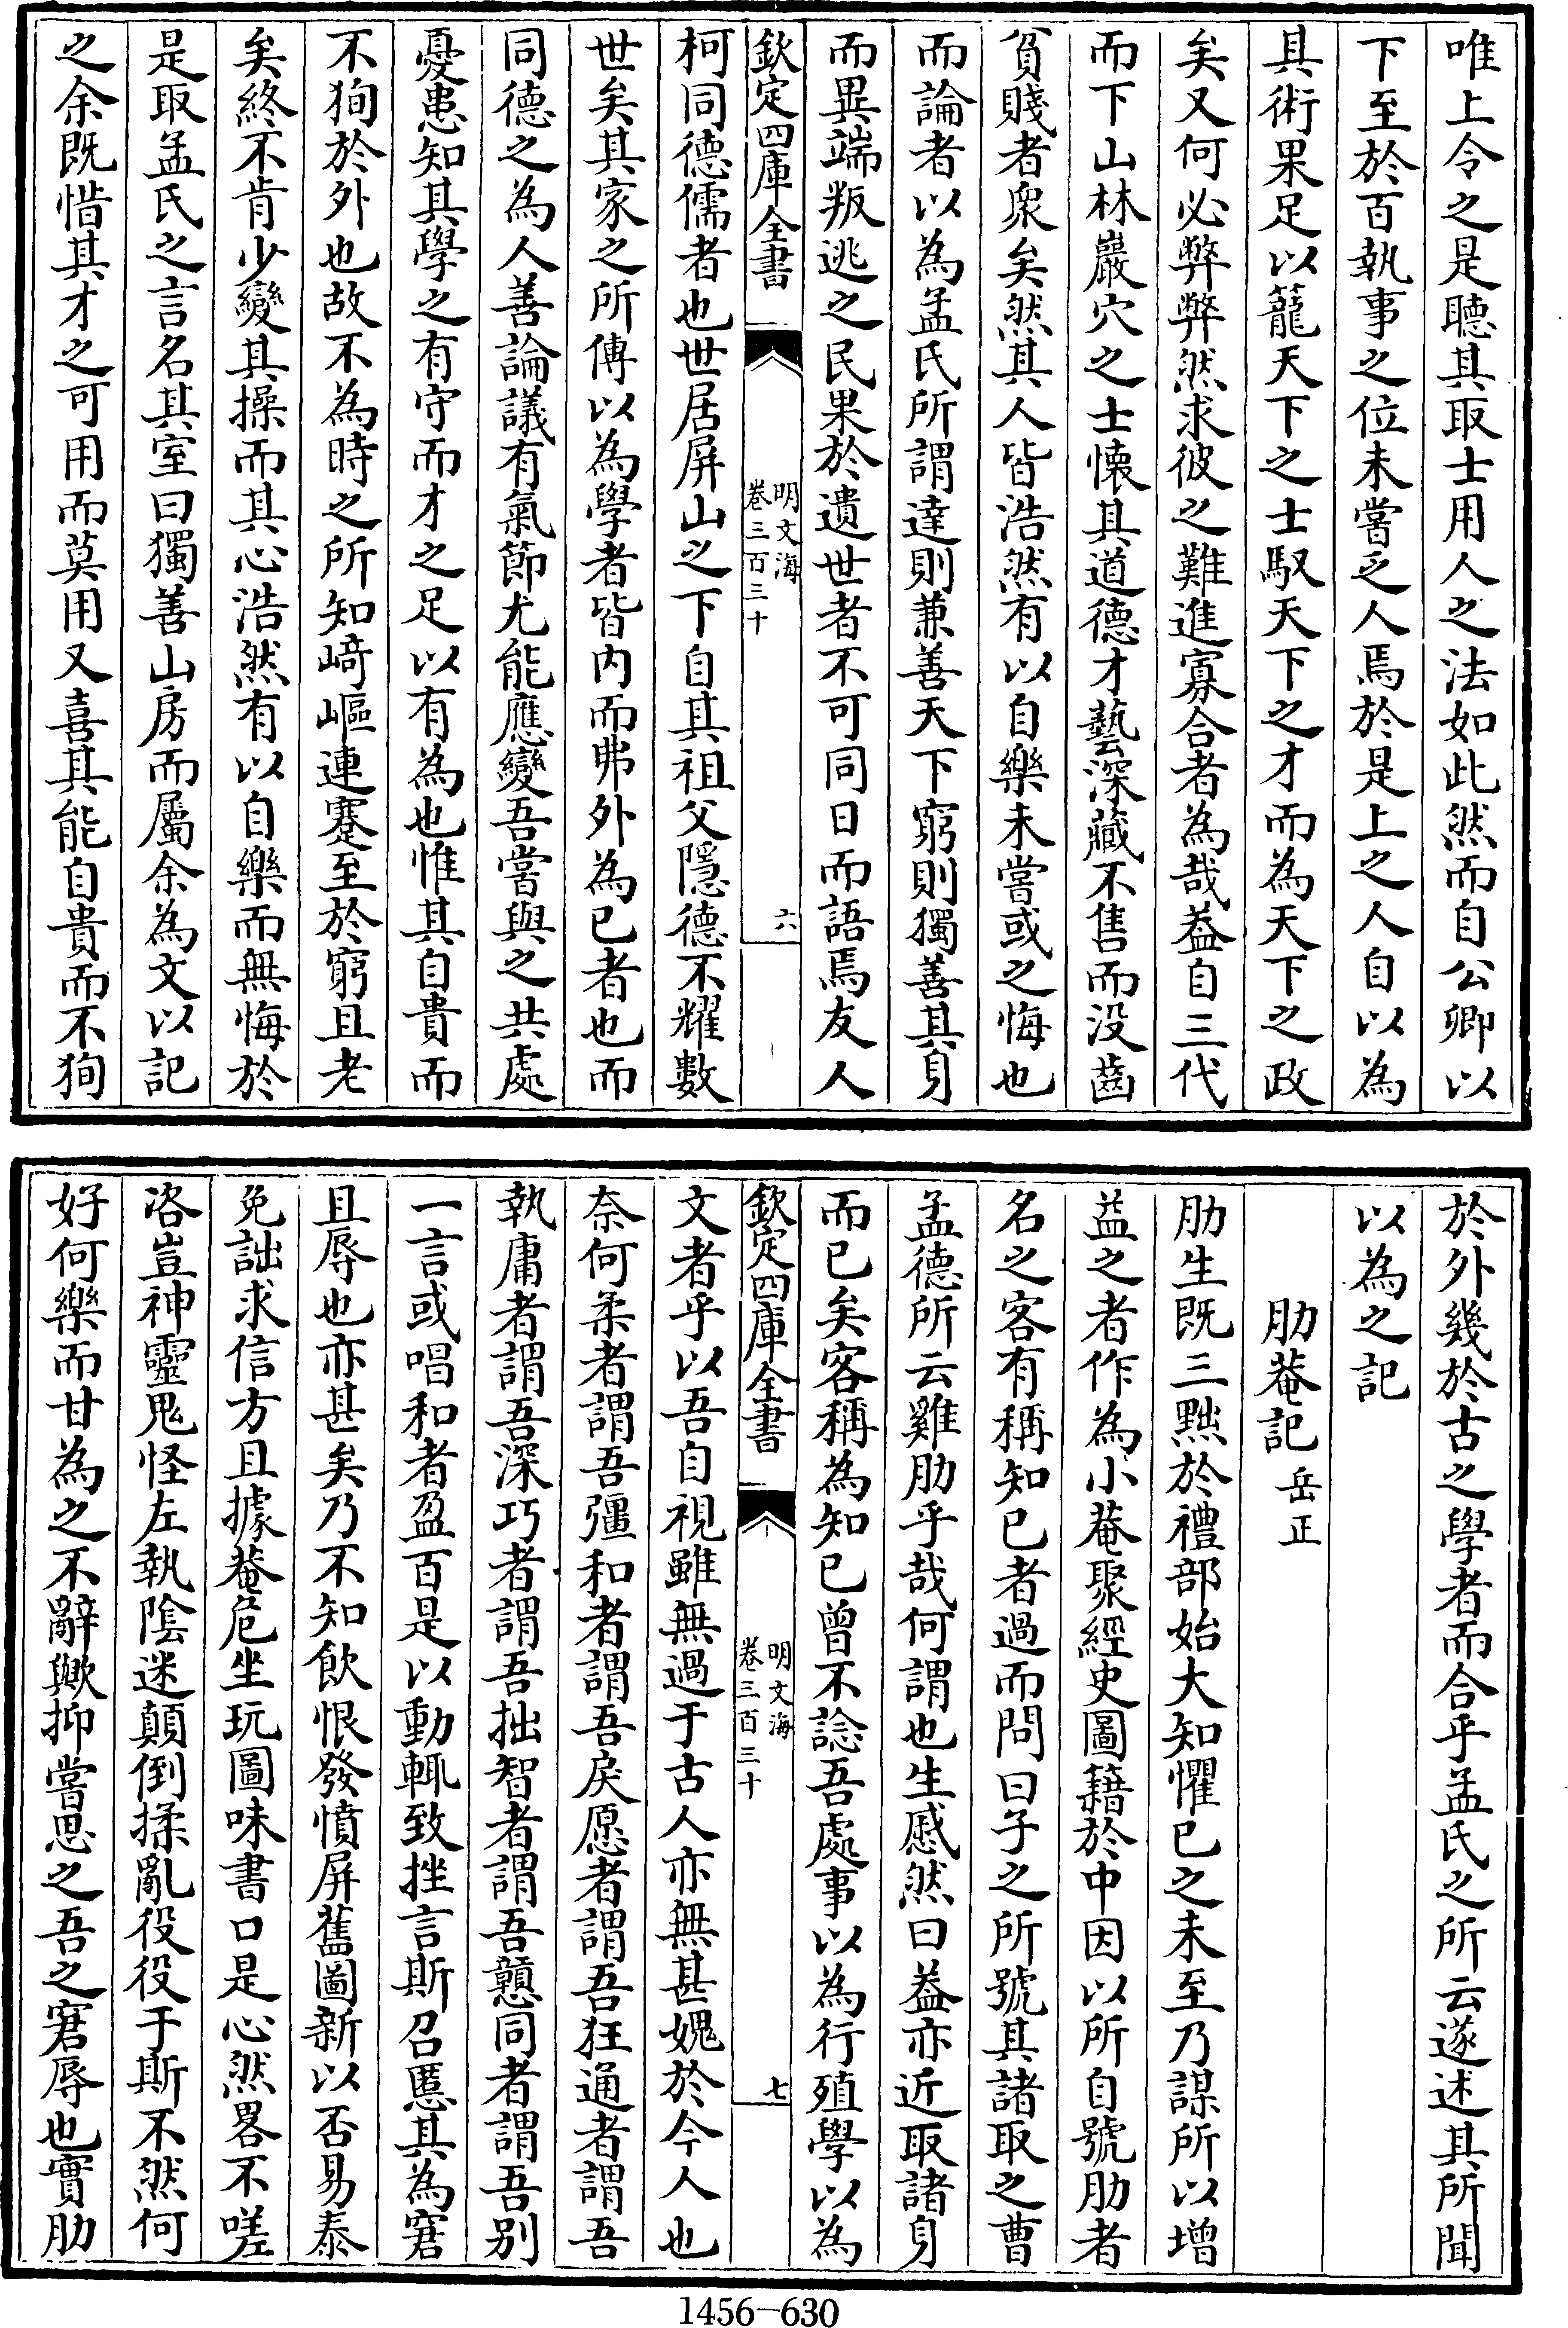 唯上令之是聽其取士用人之法如此然而自公卿以
下至於百執事之位未嘗乏人焉於是上之人自以為
具術果足以籠天下之士馭天下之才而為天下之政
矣又何必弊弊然求彼之難進寡合者為哉葢自三代
而下山林巖穴之士懐其道德才藝深藏不售而没齒
貧賤者衆矣然其人皆浩然有以自樂未嘗或之悔也
而論者以為孟氏所謂達則兼善天下窮則獨善其身
而異端叛逃之民果於遺世者不可同日而語焉友人
欽定四庫全書
明文海
卷三百三十
六
柯同德儒者也世居屏山之下自其祖父隱德不耀數
世矣其家之所傳以為學者皆内而弗外為已者也而
同德之為人善論議有氣節尤能應變吾嘗與之共處
憂患知其學之有守而才之足以有為也惟其自貴而
不狥於外也故不為時之所知﨑嶇連蹇至於窮且老
矣終不肯少變其操而其心浩然有以自樂而無悔於
是取孟氏之言名其室曰獨善山房而屬余為文以記
之余既惜其才之可用而莫用又喜其能自貴而不狥
於外幾於古之學者而合乎孟氏之所云遂述其所聞
以為之記
肋菴記 岳正
肋生既三黜於禮部始大知懼已之未至乃謀所以增
益之者作為小菴聚經史圖籍於中因以所自號肋者
名之客有稱知已者過而問曰子之所號其諸取之曹
孟德所云雞肋乎哉何謂也生慼然曰葢亦近取諸身
而已矣客稱為知已曾不諗吾處事以為行殖學以為
欽定四庫全書
明文海
卷三百三十
七
文者乎以吾自視雖無過于古人亦無甚媿於今人也
奈何柔者謂吾彊和者謂吾戾愿者謂吾狂通者謂吾
執庸者謂吾深巧者謂吾拙智者謂吾戇同者謂吾别
一言或唱和者盈百是以動輒致挫言斯召慝其為窘
且辱也亦甚矣乃不知飲恨發憤屏舊圖新以否易泰
免詘求信方且據菴危坐玩圖味書口是心然畧不嗟
咨豈神靈鬼怪左執陰迷顛倒揉亂役役于斯不然何
好何樂而甘為之不辭歟抑嘗思之吾之窘辱也實肋
1456-630